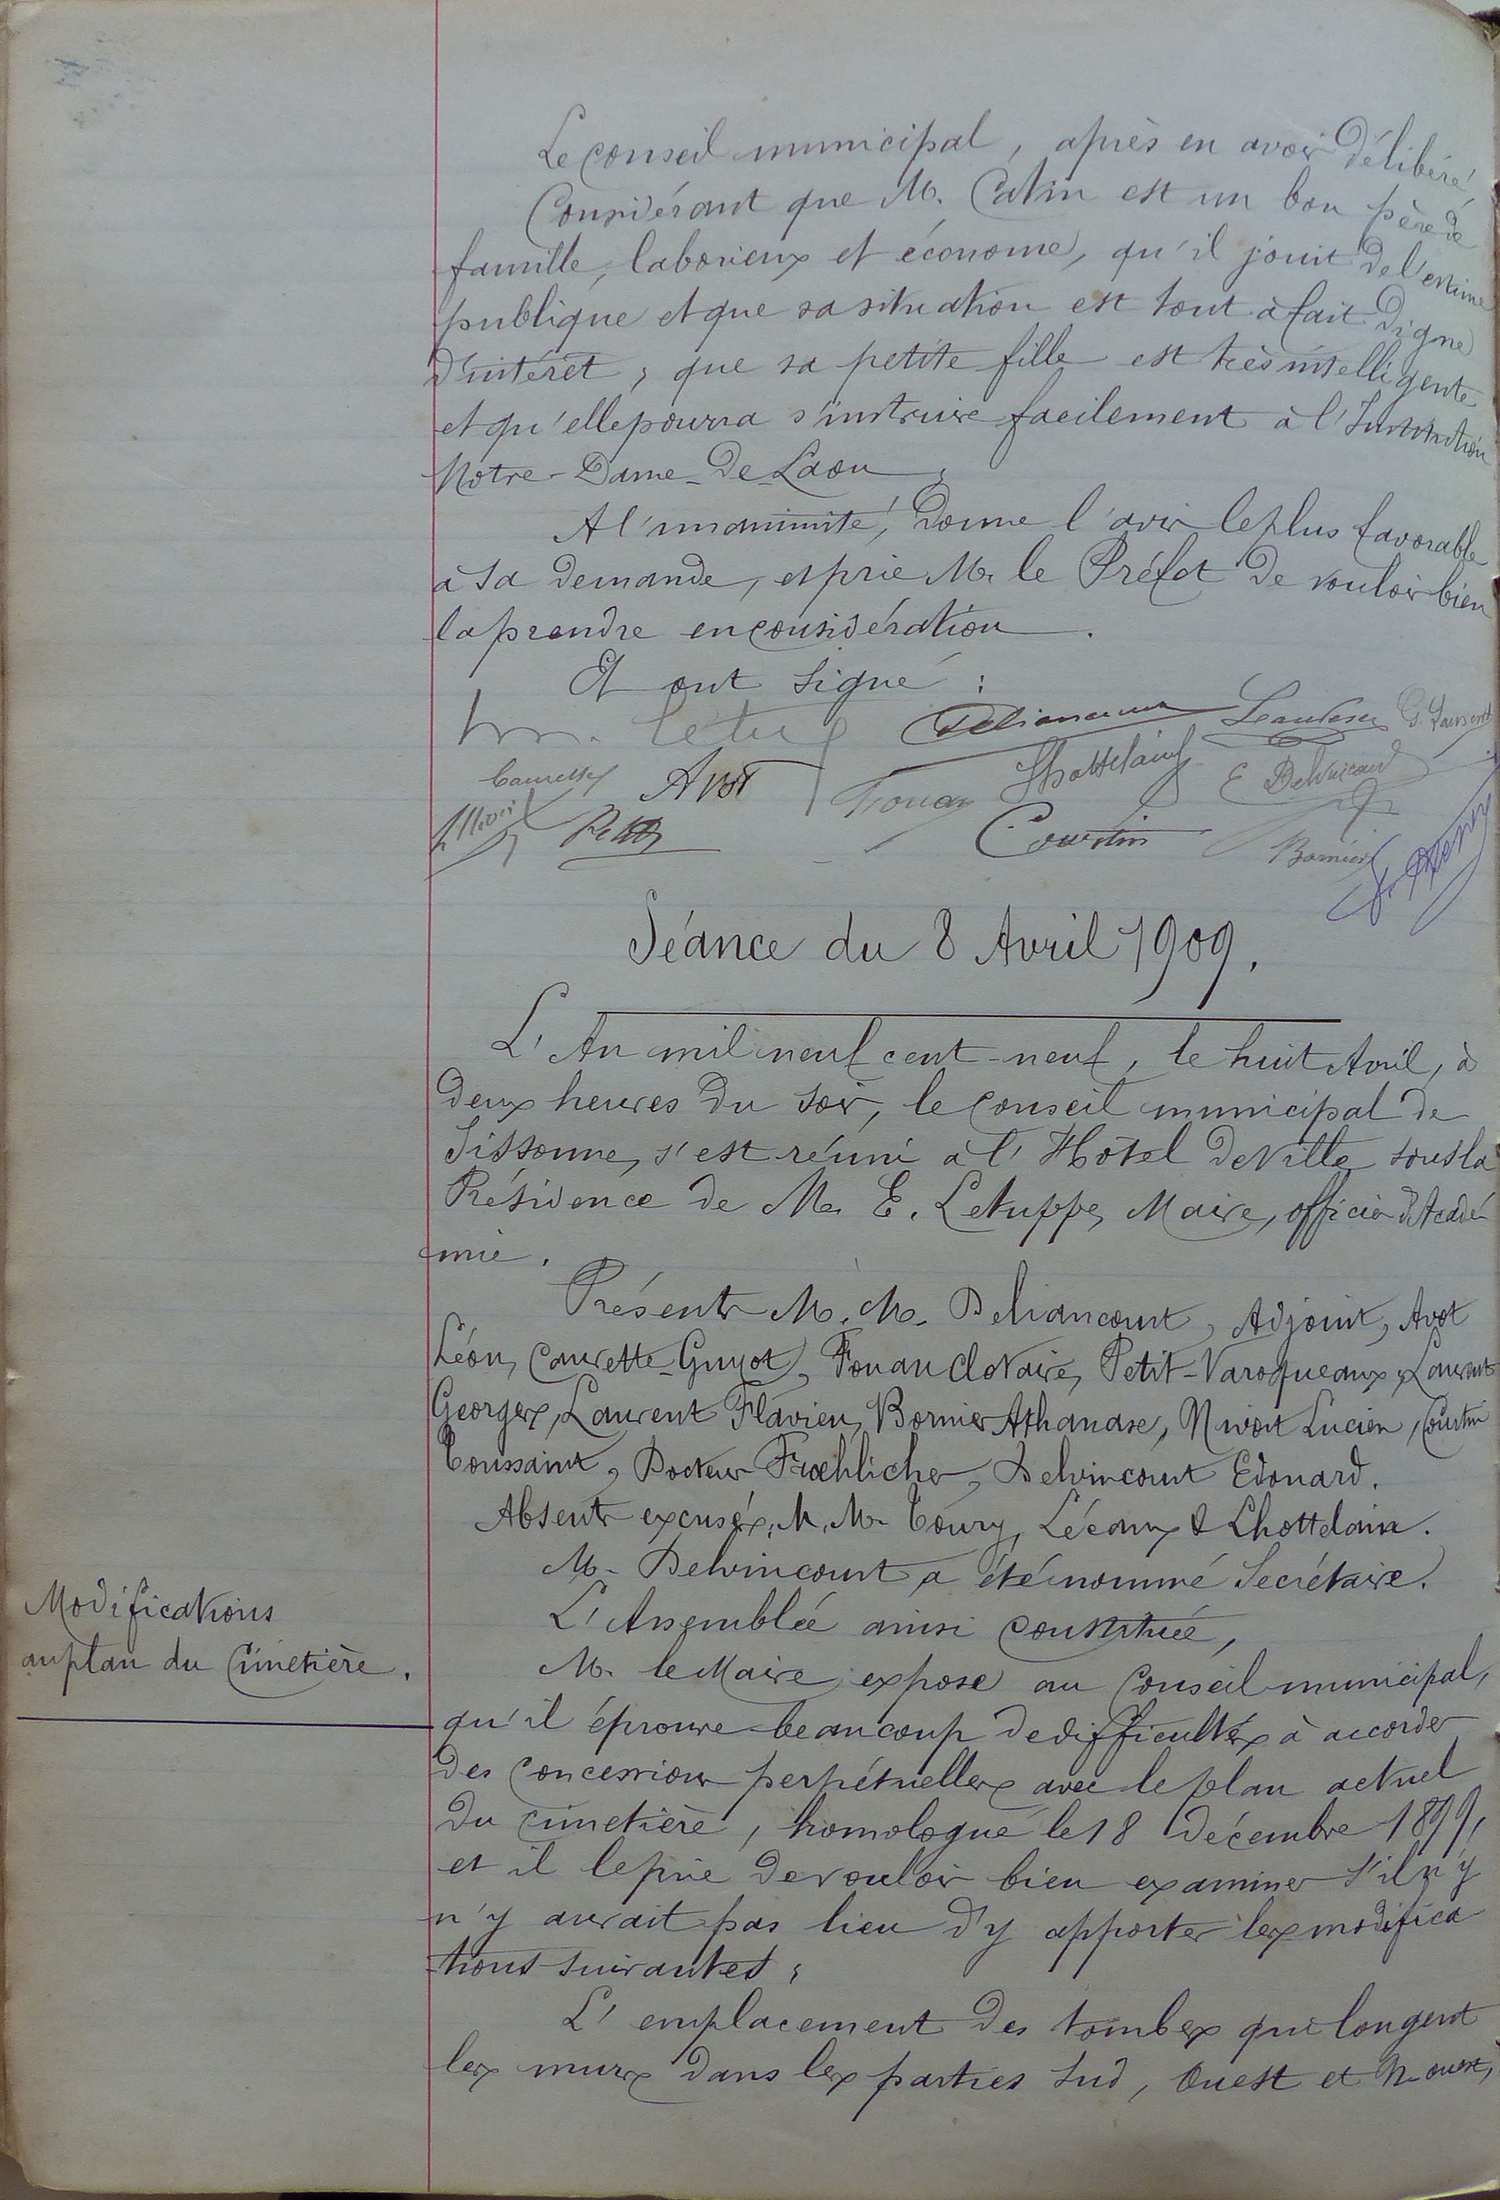 Le Conseil municipal, après en avoir délibéré,
Considérant que M. Catin est un bon père de
famille, laborieux et économe, qu'il jouit de l'estime
publique et que sa situation est tout à fait digne
d'intérêt, que sa petite fille est très intelligente
et qu'elle pourra s'instruire facilement à l'Institution
Notre-Dame-de-Laon,
A l'unanimité, donne l'avis le plus favorable
à sa demande, et prie M. le Préfet de vouloir bien
la prendre en considération.
Et ont signé :
Deliancourt G. Laurent
Caurette Avot Fouan Lhottelain E Delvincourt
Petit Courtin Bornier
Séance du 8 Avril 1909.
L'An mil neuf cent-neuf, le huit Avril, à
deux heures du soir, le Conseil municipal de
Sissonne, s'est réuni à l'Hôtel de Ville sous la
Présidence de M. E. Letuppe, Maire, officier d'Acadé
mie.
Présents M. M. Deliancourt, Adjoint, Avot
Léon, Caurette-Guyot, Fouan Clotaire, Petit-Varoqueaux, Laurent
Georges, Laurent Flavien, Bornier Athanase, Nivoit Lucien, Courtin
Toussaint, Docteur Froehlicher, Delvincourt Edouard.
Absents excusés, M. M. Toury, Lécaux & Lhottelain.
M. Delvincourt a été nommé Secrétaire.
L'Assemblée ainsi constituée,
Modifications
au plan du Cimetière.
M. le Maire expose au Conseil municipal,
qu'il éprouve beaucoup de difficultés à accorder
des concessions perpétuelles avec le plan actuel
du cimetière, homologué le 18 Décembre 1899,
et il le prie de vouloir bien examiner s'il n'y
n'y aurait pas lieu d'y apporter les modifica
tions suivantes ;
L'emplacement des tombes qui longent
les murs dans les parties sud, Ouest et N-ouest,